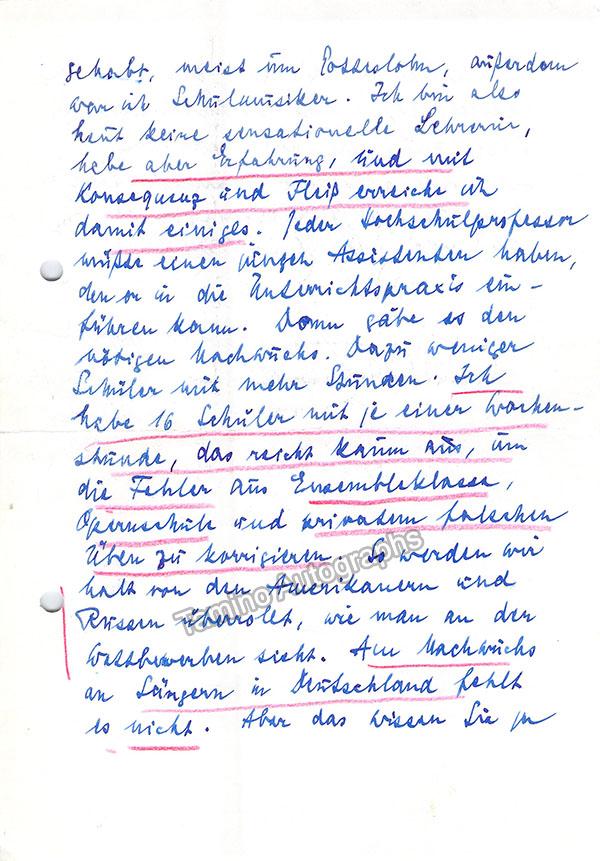 gehabt, meist um Gotteslohn, außerdem
war ich Schulmusiker. Ich bin also
heut keine sensationelle Lehrerin,
habe aber Erfahrung, und mit
Konsequenz und Fleiß erreiche ich
damit einiges. Jeder Hochschulprofessor
müßte einen jungen Assistenten haben,
den er in die Unterrichtspraxis ein-
führen kann. Dann gäbe es den
nötigen Nachwuchs. Dazu weniger
Schüler mit mehr Stunden. Ich
habe 16 Schüler mit je einer Wochen-
stunde, das reicht kaum aus, um
die Fehler aus Ensembleklasse,
Opernschule und privatem falschen
Üben zu korrigieren. So werden wir
halt von den Amerikanern und
Russen überrollt, wie man an den
Wettbewerben sieht. Am Nachwuchs
an Sängern in Deutschland fehlt
es nicht. Aber das wissen Sie ja
Tamino Autographs